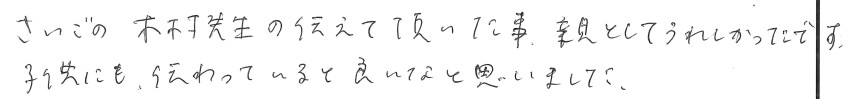 さいごの 木村先生の伝えて頂いた事、親としてうれしかったです。
子供にも、伝わっていると良いなと思いました。